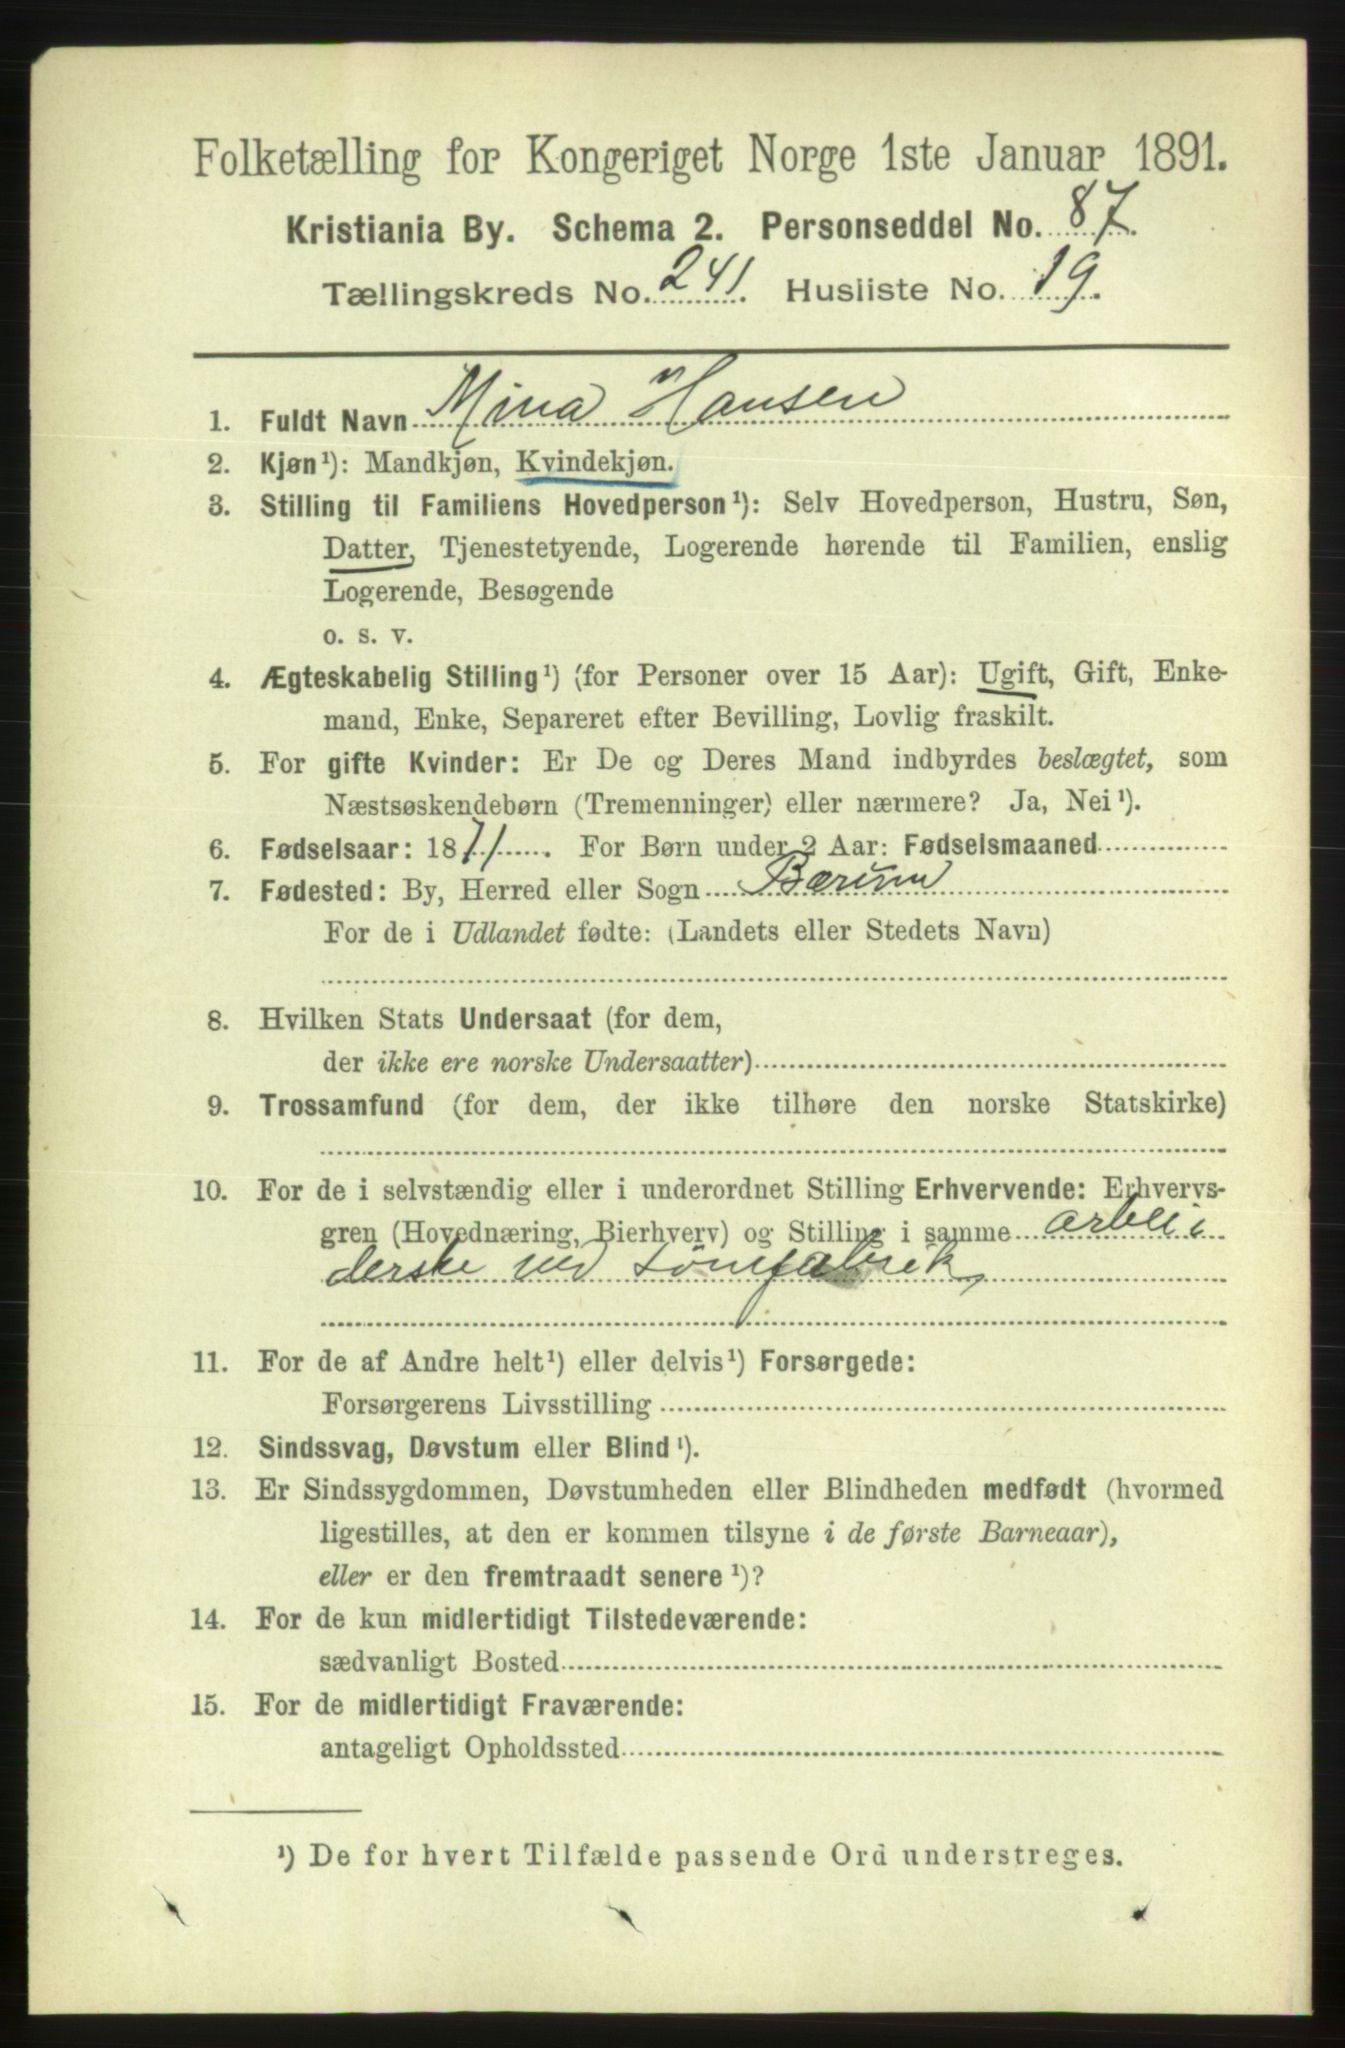 Folketælling for Kongeriget Norge 1ste Januar 1891.
Kristiania By. Schema 2. Personseddel No. 87.
Tællingskreds No. 241. Husliste No. 19.
1. Fuldt Navn Mina Hansen
2. Kjøn¹): Mandkjøn, Kvindekjøn.
3. Stilling til Familiens Hovedperson¹): Selv Hovedperson, Hustru, Søn,
Datter, Tjenestetyende, Logerende hørende til Familien, enslig
Logerende, Besøgende
o. s. v.
4. Ægteskabelig Stilling¹) (for Personer over 15 Aar): Ugift, Gift, Enke-
mand, Enke, Separeret efter Bevilling, Lovlig fraskilt.
5. For gifte Kvinder: Er De og Deres Mand indbyrdes beslægtet, som
Næstsøskendebørn (Tremenninger) eller nærmere? Ja, Nei¹).
6. Fødselsaar: 1871. For Børn under 2 Aar: Fødselsmaaned
7. Fødested: By, Herred eller Sogn Bærum
For de i Udlandet fødte: (Landets eller Stedets Navn)
8. Hvilken Stats Undersaat (for dem,
der ikke ere norske Undersaatter)
9. Trossamfund (for dem, der ikke tilhøre den norske Statskirke)
10. For de i selvstændig eller i underordnet Stilling Erhvervende: Erhvervs-
gren (Hovednæring, Bierhverv) og Stilling i samme arbei
derske ved sømfabrik
11. For de af Andre helt¹) eller delvis¹) Forsørgede:
Forsørgerens Livsstilling
12. Sindssvag, Døvstum eller Blind¹).
13. Er Sindssygdommen, Døvstumheden eller Blindheden medfødt (hvormed
ligestilles, at den er kommen tilsyne i de første Barneaar),
eller er den fremtraadt senere¹)?
14. For de kun midlertidigt Tilstedeværende:
sædvanligt Bosted
15. For de midlertidigt Fraværende:
antageligt Opholdssted
¹) De for hvert Tilfælde passende Ord understreges.